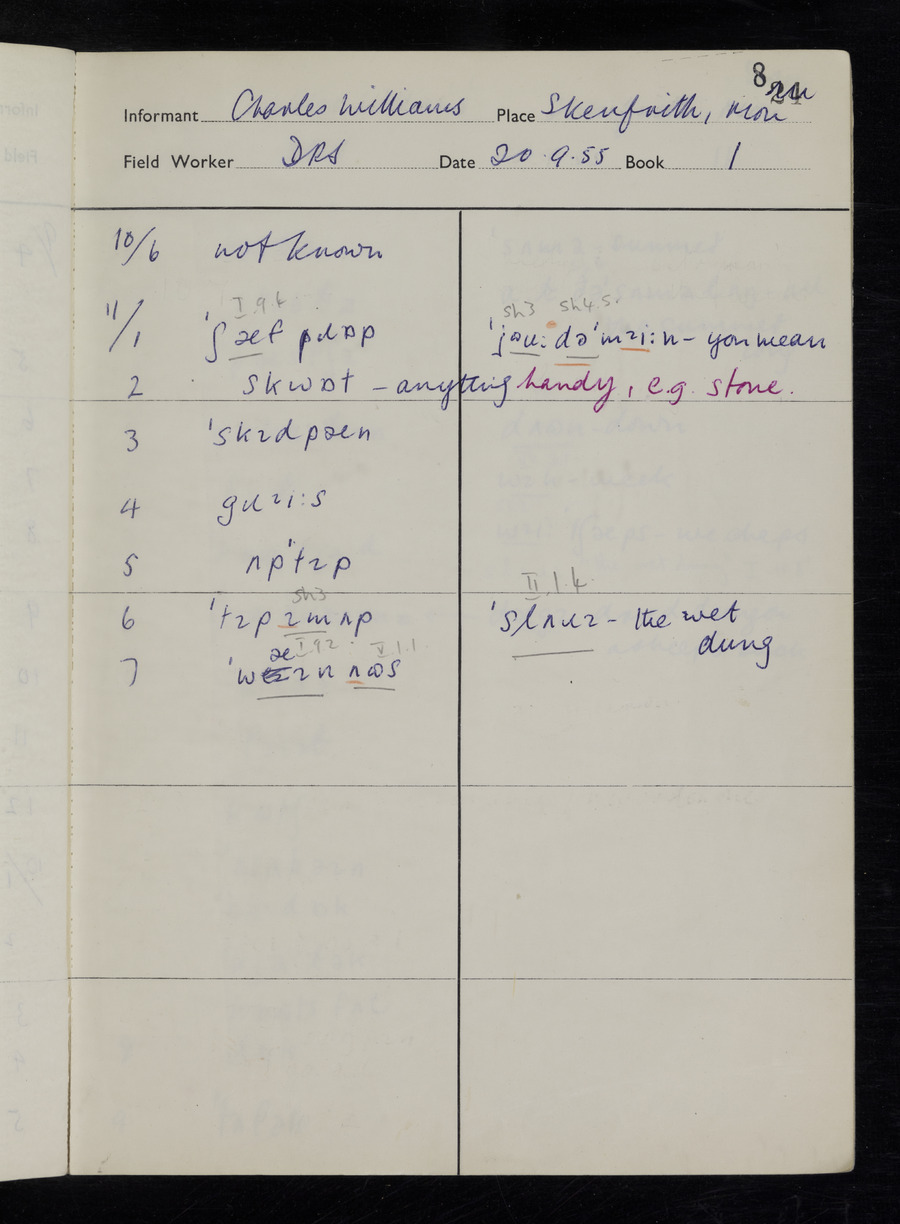 8
24
Informant Charles Williams Place Skenfrith, Mon
Field Worker DRS Date 20.9.55 Book 1
10/6 not known
I.9.4 sh3 sh4.5
11/1 'ʃæfpɹɒp 'jəu:də'mɪi:n - you mean
2 skwɒt - anything handy, e.g. stone.
3 'skɪdpæn
4 gɹɪi:s
5 ʌp'tɪp
sh3 II.1.4
6 'tɪpɪmʌp 'slʌɹɪ - the wet
dung
æ I.9.2 V.1.1
7 'wæɪnʌɷs